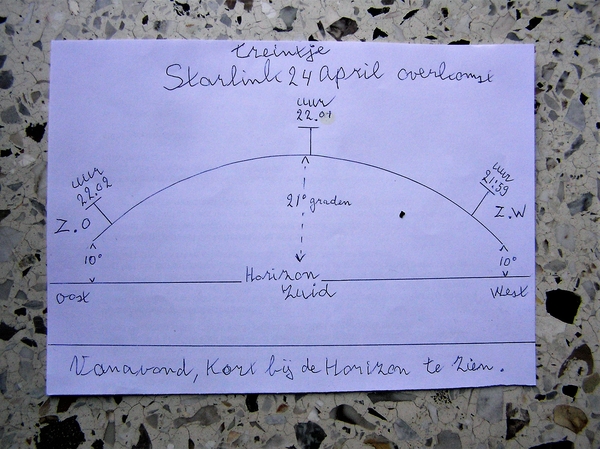 treintje
Starlink 24 April overkomst
uur
22.01
uur
22.02
uur
21:59
Z.O
21° graden
Z.W
10°
10°
Horizon
Oost
Zuid
West
Vanavond, Kort bij de Horizon te Zien.